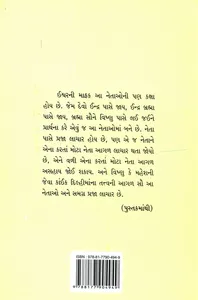 ઈશ્વરની માફક આ નેતાઓની પણ કક્ષા
હોય છે. જેમ દેવો ઈન્દ્ર પાસે જાય, ઈન્દ્ર બ્રહ્મા
પાસે જાય, બ્રહ્મા સૌને વિષ્ણુ પાસે લઈ જઈને
પ્રાર્થના કરે એવું જ આ નેતાઓમાં બને છે. નેતા
પાસે પ્રજા લાચાર હોય છે, પણ એ જ નેતાને
એના કરતાં મોટા નેતા આગળ લાચાર થતા જોઈએ
છે, એને વળી એના કરતાં મોટા નેતા આગળ
અસહાય જોઈ શકાય. અને વિષ્ણુ કે મહેશની
જેવા કાંઈક દિલ્હીમાંના તત્ત્વની આગળ સૌ આ
નેતાઓ અને સમગ્ર પ્રજા લાચાર છે.
(પુસ્તકમાંથી)
ISBN : 978-81-7790-494-9
9 788177 904949